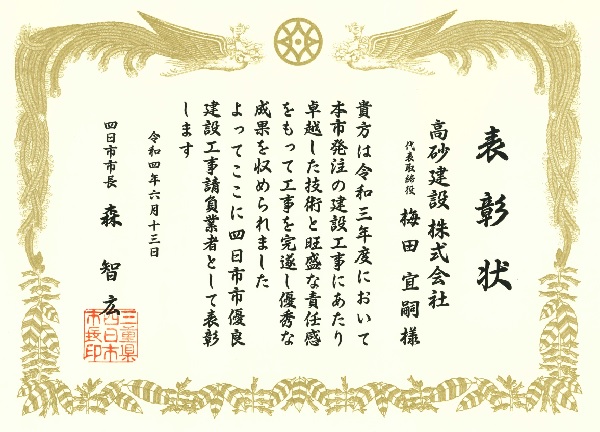 表彰状
高砂建設株式会社
代表取締役 梅田宜嗣様
貴方は令和三年度において
本市発注の建設工事にあたり
卓越した技術と旺盛な責任感
をもって工事を完遂し優秀な
成果を収められました
よってここに四日市市優良
建設工事請負業者として表彰
します
令和四年六月十三日
四日市市長 森智広
三重県
四日市
市長印